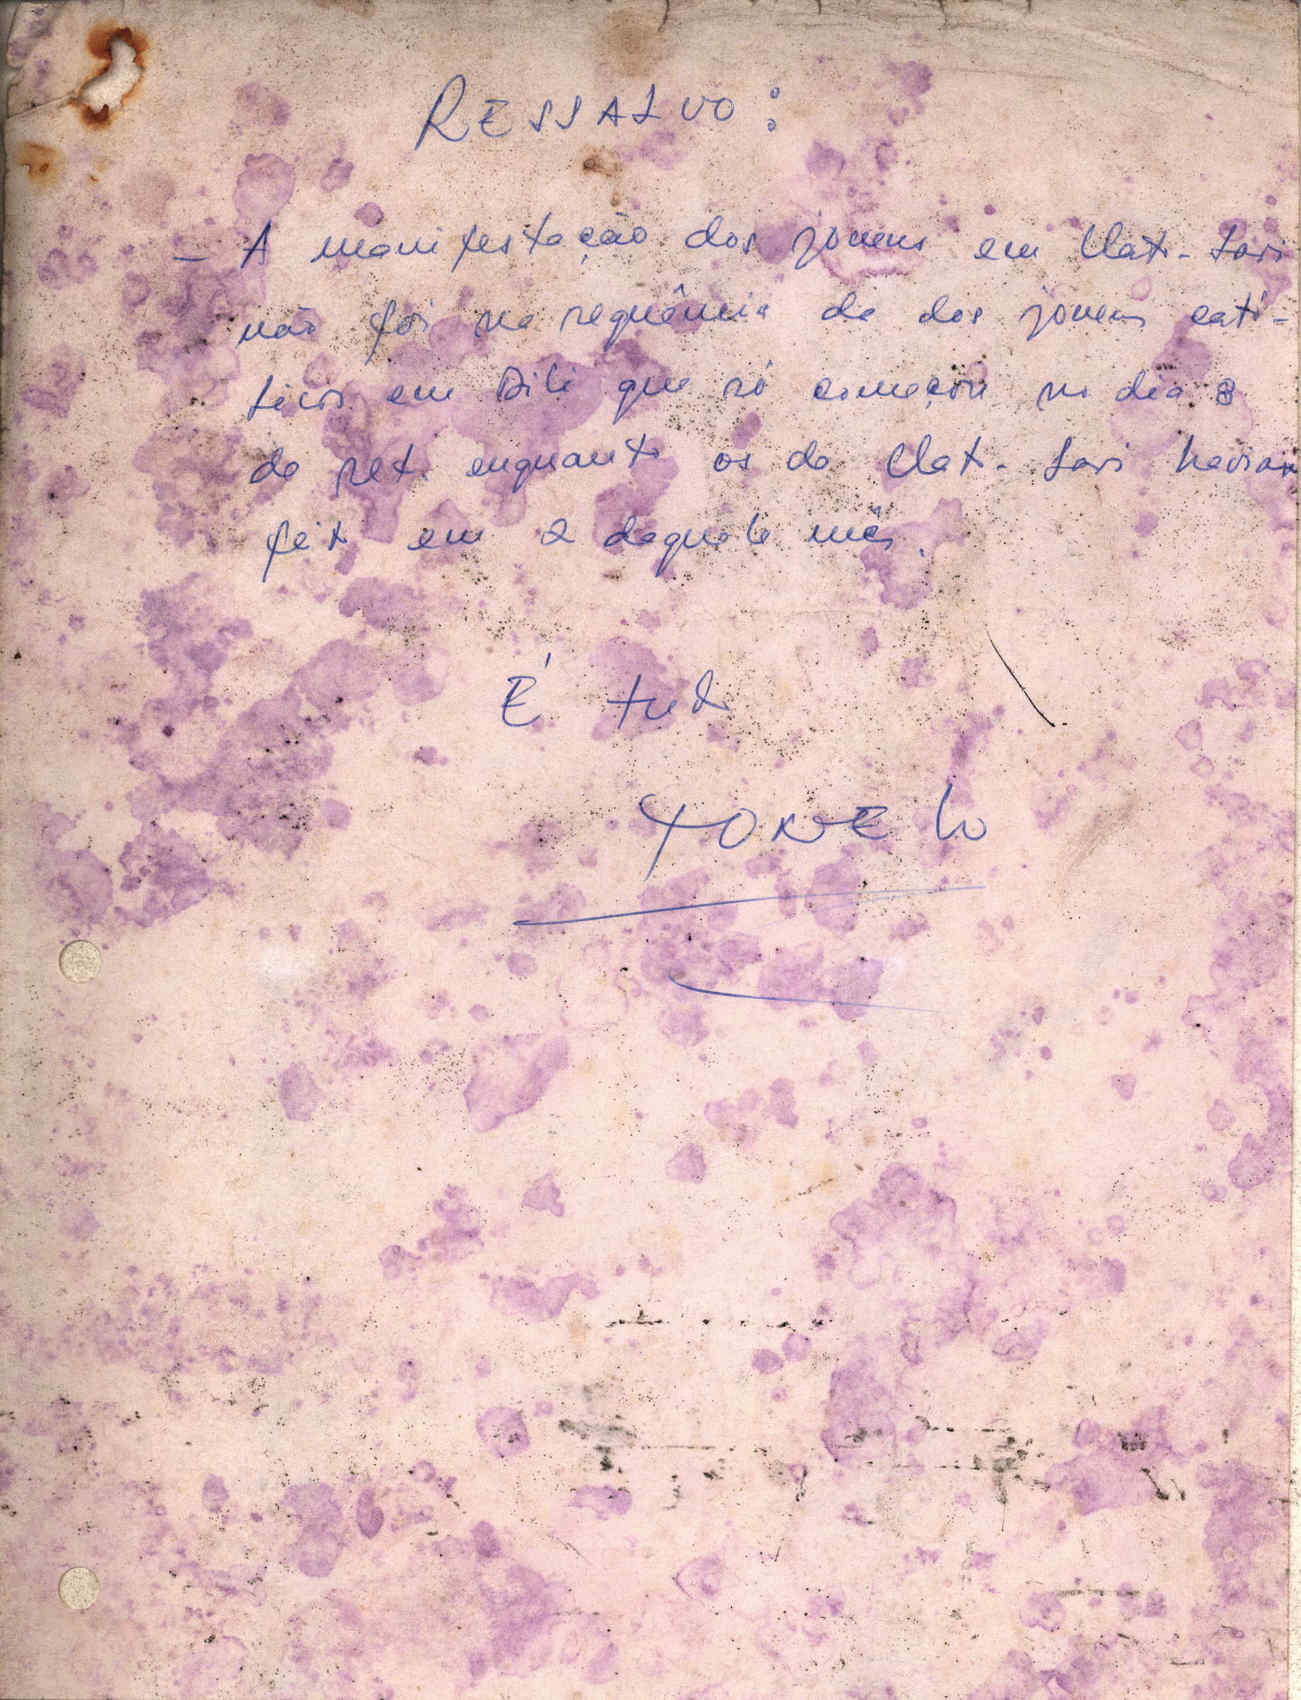 RESSALVO:
- A manifestação dos jovens em Uato-Lari
não foi na sequência da dos jovens cató-
licos em Dili que só começou no dia 8
de set. enquanto os de Uato-Lari haviam
feito em 2 daquele mês.
É tudo